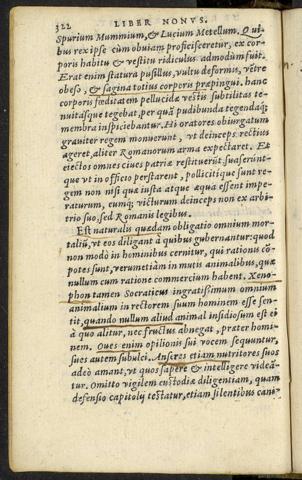 322 LIBER NONVS.
Spurium Mummium, & Lucium Metellum. Quibus
rex ipse cùm obuiam proficisceretur, ex corporis
habitu & vestitu ridiculus admodùm fuit.
Erat enim statura pusillus, vultu deformis, vẽtre
obeso, & sagina totius corporis præpingui. hanc
corporis fœditatem pellucidæ vestis subtilitas tenuitasque
tegebat, per quã pudibunda tegendaq́;
membra inspiciebantur. Hi oratores obiurgatum
grauiter regem monuerunt, vt deinceps rectius
ageret, aliter Romanorum arma expectaret. Et
eiectos omnes ciues patriæ restituerũt suaserúntque
vt in officio perstarent, pollicitíque sunt regem
non nisi quæ iusta atque æqua essent imperaturum,
eumq́; victurum deinceps non ex arbitrio
suo, sed Romanis legibus.
Est naturalis quædam obligatio omnium mortaliũ,
vt eos diligant à quibus gubernantur: quod
non modò in hominibus cernitur, qui rationis cõpotes
sunt, verumetiàm in mutis animalibus, quæ
nullum cum ratione commercium habent. Xenophon
tamen Socraticus ingratissimum omnium
animalium in rectorem suum hominem esse sentit,
quando nullum aliud animal insidiosum est ei
à quo alitur, nec fructus abnegat, præter hominem.
Oues enim opilionis sui vocem sequuntur,
sues autem subulci. Anseres etiam nutritores suos
adeò amant, vt quos sapere & intelligere videãtur.
Omitto vigilem custodiæ diligentiam, quam
defensio capitoly testatur, etiam silentibus cani-